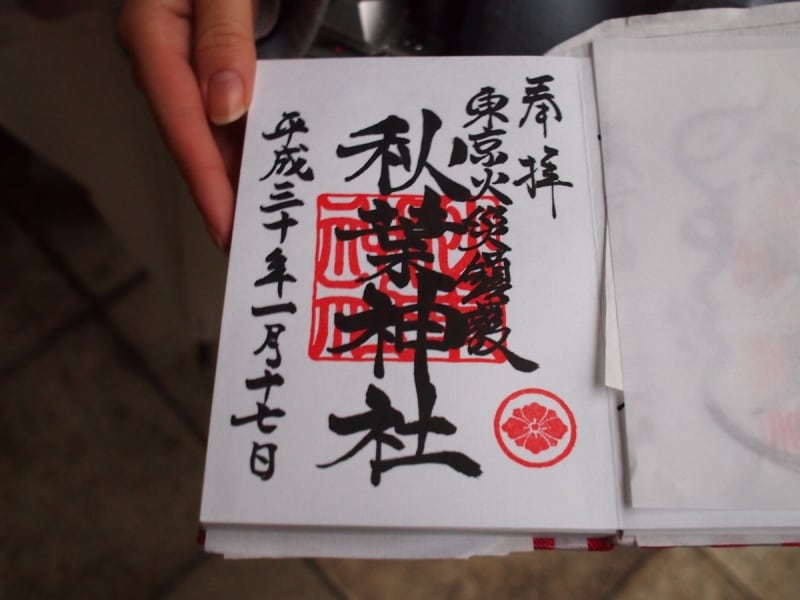 奉拝
東京火災鎮護
秋葉神社
平成三十年一月十七日